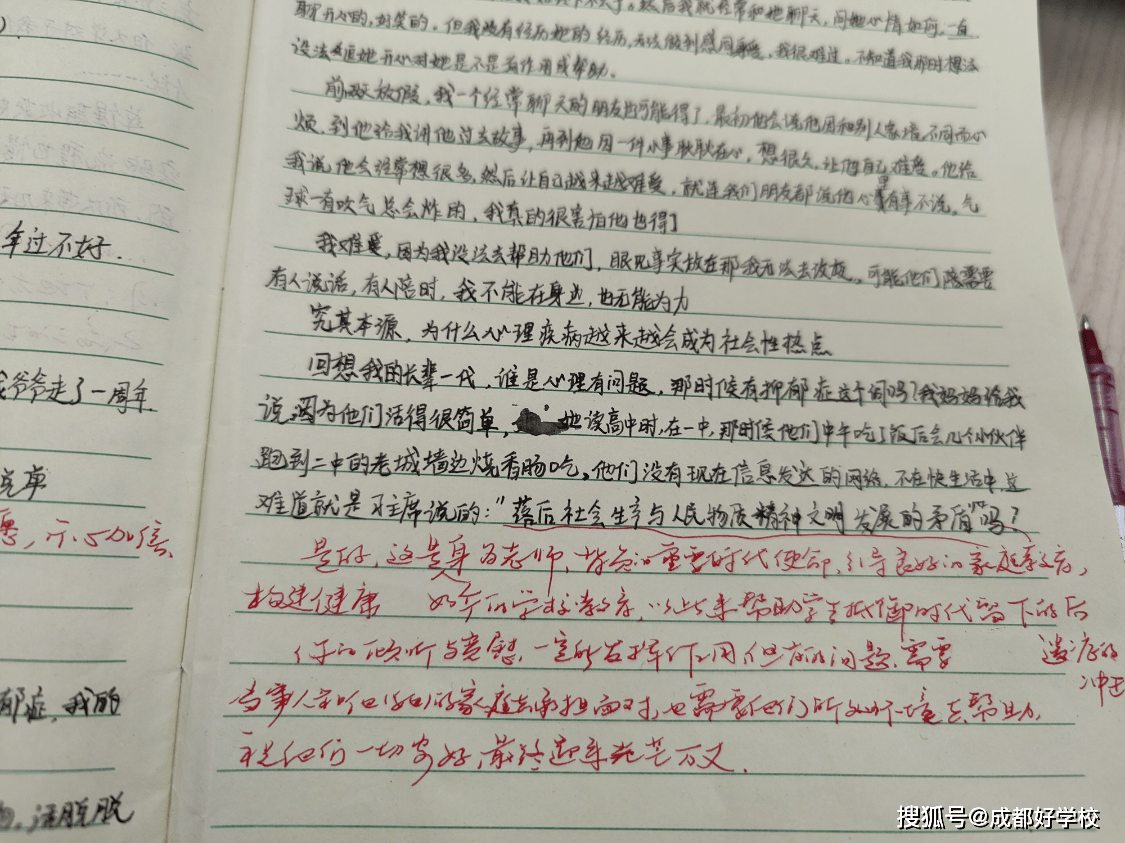 年过不好.
爷爷走了一周年
郁症,我的
活脱脱
聊开心的,好笑的,但我没有经历她的经历,无法做到感同身受,我很难过,不知道我那时想法
设法逗她开心对她是不是有作用或帮助.
前两天放假,我一个经常聊天的朋友也可能得了,最初他会说他因和别人家境不同而心
烦,到他给我讲他过去故事,再到他因一件小事耿耿在心,想很久,让他自己难受。他给
我说他会经常想很多,然后让自己越来越难受,就连我们朋友都说他心里有事不说。气
球一直吹气总会炸的,我真的很害怕他也得了
我难受,因为我没法去帮助他们,眼见事实放在那我无法去改变,可能他们需要
有人说话,有人陪时,我不能在身边,也无能为力
究其本源,为什么心理疾病越来越会成为社会性热点
回想我的长辈一代,谁是心理有问题,那时候有抑郁症这个词吗?我妈妈给我
说,因为他们活得很简单,她读高中时,在一中,那时候他们中午吃了饭后会几个小伙伴
跑到二中的老城墙边烧香肠吃。他们没有现在信息发达的网络,不在快生活中,这
难道就是习主席说的:“落后社会生产与人民物质精神文明发展的矛盾”吗?
是的,这是身为老师,背负的重要时代使命,引导良好的家庭教育,
构建健康 的学校教育,以此来帮助学生抵御时代留下的后
你的倾听与安慰,一定能发挥作用,但有的问题,需要
遗症的
冲击
当事人和他们的家庭去承担面对,也需要他们所处环境去帮助,
祝他们一切安好,最终起来光芒万丈.
搜狐号@成都好学校